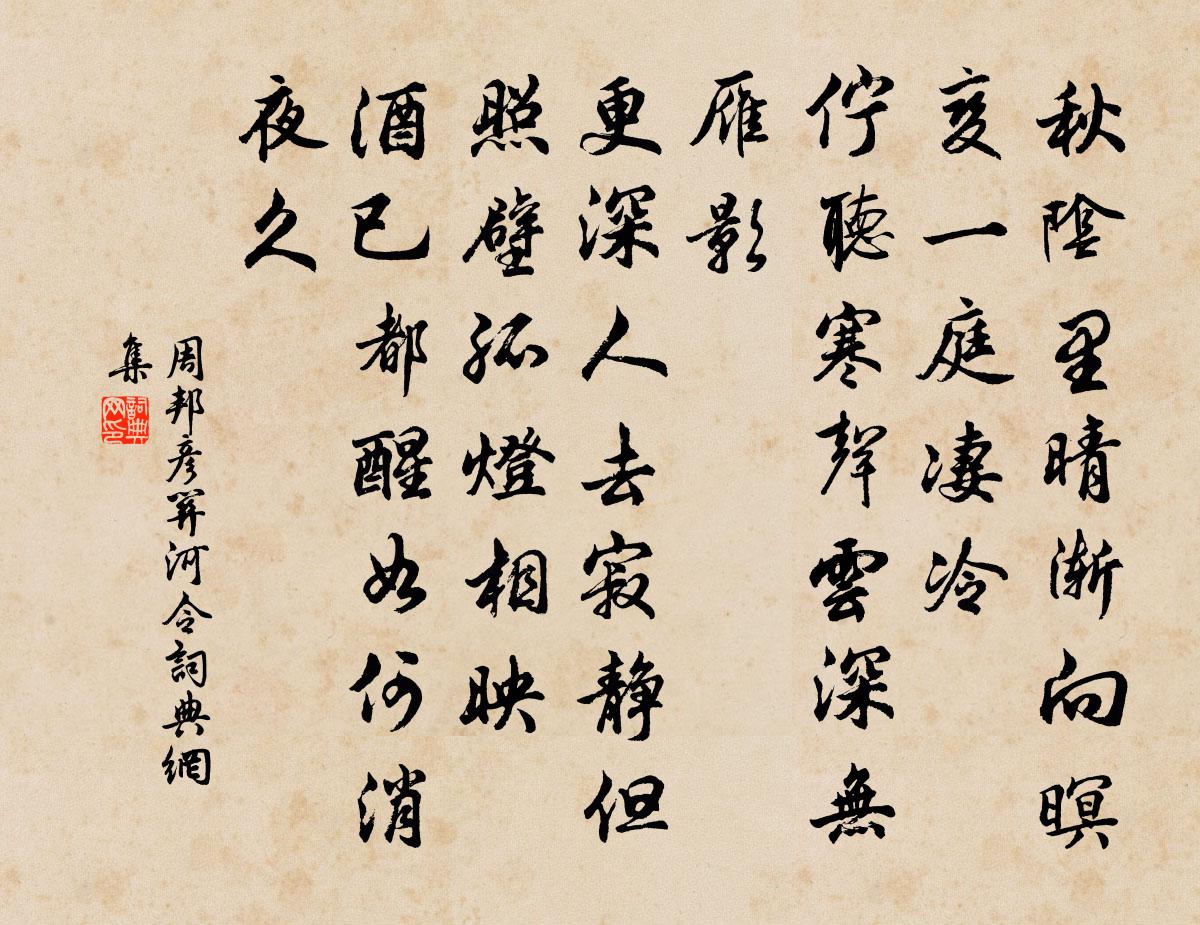 秋陰里晴漸向暝
變一庭凄冷
佇聽寒聲雲深無
雁影
更深人去寂靜但
照壁孤燈相映
酒已都醒如何消
夜久
周邦彥關河令詞典網
集
詞典
网印